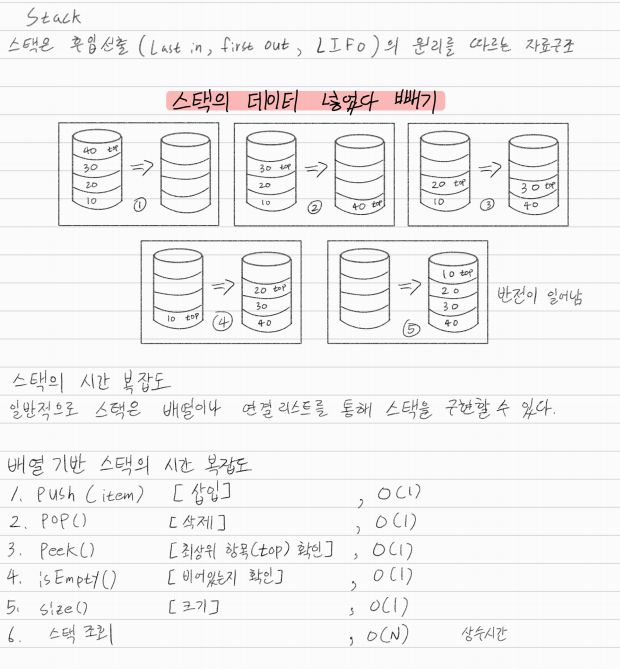 Stack
스택은 후입선출 (Last in, first out, LIFO)의 원리를 따르는 자료구조
스택의 데이터 넣었다 빼기
40 top
30
20
10
=>
①
30 top
20
10
=>
40 top
②
20 top
10
=>
30 top
40
③
10 top
=>
20 top
30
40
④
=>
10 top
20
30
40
⑤
반전이 일어남
스택의 시간 복잡도
일반적으로 스택은 배열이나 연결리스트를 통해 스택을 구현할 수 있다.
배열 기반 스택의 시간 복잡도
1. Push (item) [삽입] , O(1)
2. POP() [삭제] , O(1)
3. Peek() [최상위 항목(top) 확인] , O(1)
4. isEmpty() [비어있는지 확인] , O(1)
5. size() [크기] , O(1)
6. 스택 조회 , O(N) 상수시간